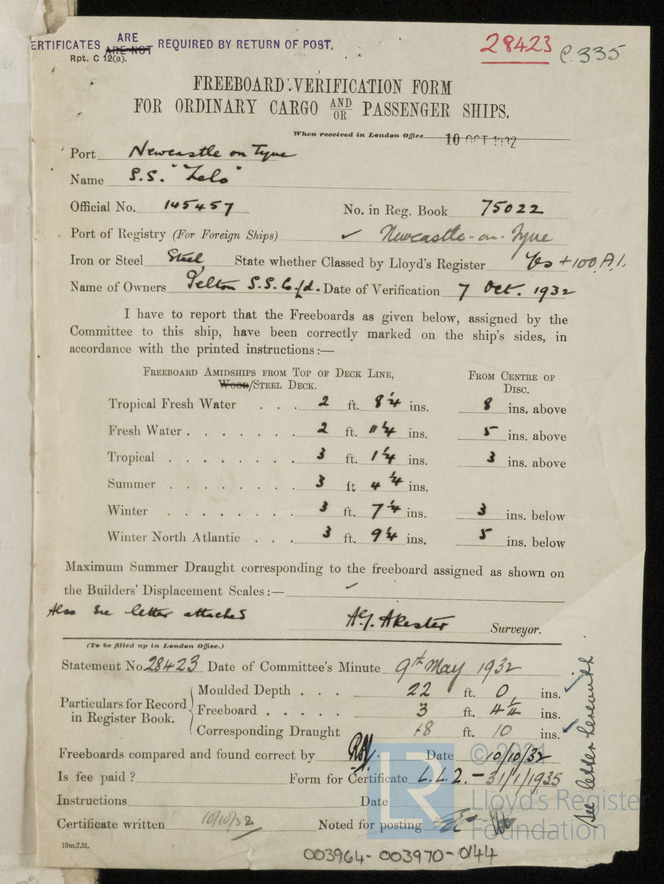 ERTIFICATES ARE ARE NOT REQUIRED BY RETURN OF POST.
28423 C.335
Rpt. C 12(a).
FREEBOARD VERIFICATION FORM
FOR ORDINARY CARGO AND/OR PASSENGER SHIPS.
When received in London Office 10 OCT 1932
Port Newcastle on Tyne
Name S.S. "Zelo"
Official No. 145457 No. in Reg. Book 75022
Port of Registry (For Foreign Ships) ✓ Newcastle-on-Tyne
Iron or Steel Steel State whether Classed by Lloyd's Register Yes +100.A.1.
Name of Owners Pelton S.S. Co Ld. Date of Verification 7 Oct. 1932
I have to report that the Freeboards as given below, assigned by the
Committee to this ship, have been correctly marked on the ship's sides, in
accordance with the printed instructions:—
FREEBOARD AMIDSHIPS FROM TOP OF DECK LINE, FROM CENTRE OF
Wood/STEEL DECK. DISC.
Tropical Fresh Water . . . 2 ft. 8 1/4 ins. 8 ins. above
Fresh Water . . . . . . . 2 ft. 11 1/4 ins. 5 ins. above
Tropical . . . . . . . . 3 ft. 1 1/4 ins. 3 ins. above
Summer . . . . . . . . 3 ft 4 1/4 ins.
Winter . . . . . . . . 3 ft. 7 1/4 ins. 3 ins. below
Winter North Atlantic . . . 3 ft. 9 1/4 ins. 5 ins. below
Maximum Summer Draught corresponding to the freeboard assigned as shown on
the Builders' Displacement Scales:— ✓
Also see letter attached
A.J. Akester Surveyor.
(To be filled up in London Office.)
Statement No. 28423 Date of Committee's Minute 9th May 1932
Particulars for Record in Register Book.
Moulded Depth . . . 22 ft. 0 ins. ✓
Freeboard . . . . 3 ft. 4 1/4 ins.
Corresponding Draught 18 ft. 10 ins. ✓
See letter herewith.
Freeboards compared and found correct by Date 10/10/32
Is fee paid? Form for Certificate L.L.2. – 31/1/1935
Instructions Date
Certificate written 10/10/32 Noted for posting
10m,7,31.
© 2021
LR
Lloyd's Register
Foundation
003964-003970-0144